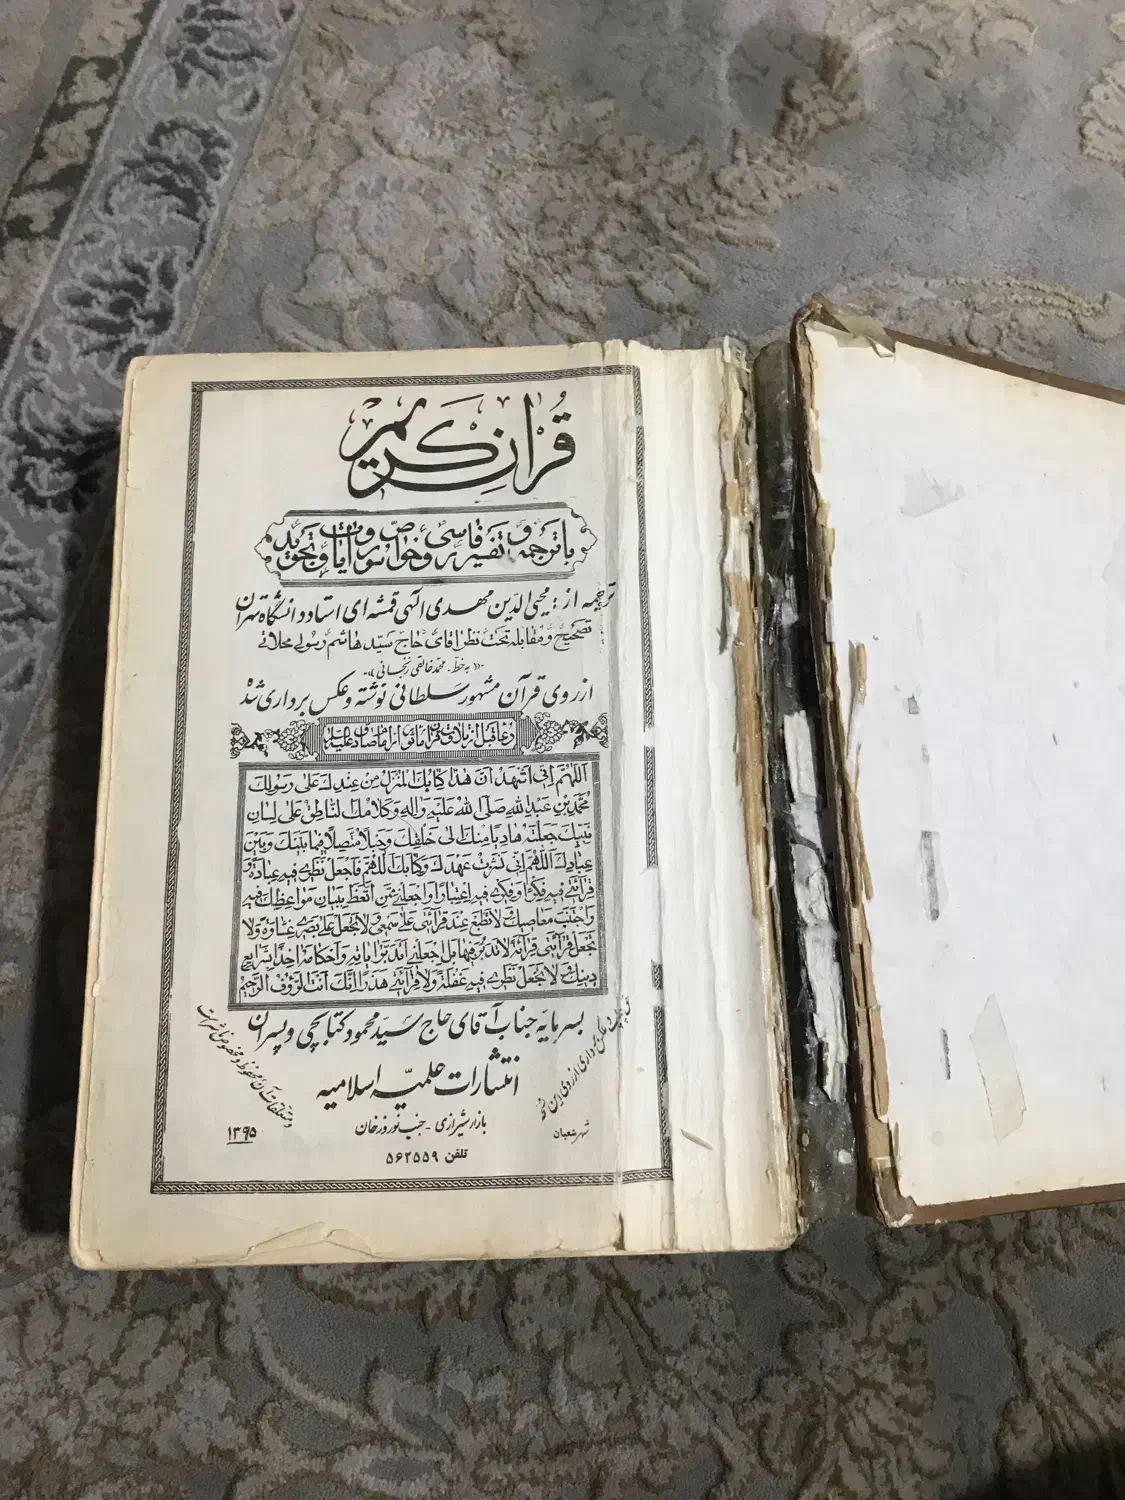 قرآن کریم
با ترجمه و تفسیر فارسی و خواص سور و آیات و تجوید
ترجمه از: محیی الدین مهدی الهی قمشه ای استاد دانشگاه تهران
تصحیح و مقابله تحت نظر آقای حاج سید هاشم رسولی محلاتی
«به خط - محمد خالقی زنجانی»
از روی قرآن مشهور سلطانی نوشته و عکس برداری شده
دعا قبل از تلاوت قرآن مأثور از امام صادق علیه السلام
اللهم انی اشهد ان هذا کتابک المنزل من عندک علی رسولک
محمد بن عبد الله صلی الله علیه واله وکلامک الناطق علی لسان
نبیک جعلته هادیا منک الی خلقک وحبلا متصلا فیما بینک وبین
عبادک اللهم انی نشرت عهدک وکتابک اللهم فاجعل نظری فیه عبادة و
قرائتی فیه فکرا وفکری فیه اعتبارا واجعلنی ممن اتعظ ببیان مواعظک فیه
واجتنب معاصیک ولا تطبع عند قرائتی علی سمعی ولا تجعل علی بصری غشاوة ولا
تجعل قرائتی قرائة لا تدبر فیها بل اجعلنی اتدبر ایاته واحکامه اخذا بشرایع
دینک ولا تجعل نظری فیه غفلة ولا قرائتی هذرا انک انت الرؤف الرحیم
بسرمایه جناب آقای حاج سید محمود کتابچی و پسران
انتشارات علمیه اسلامیه
بازار شیرازی - جنب نوروزخان
تلفن ۵۶۲۵۵۹
۱۳۹۵
شهر شعبان